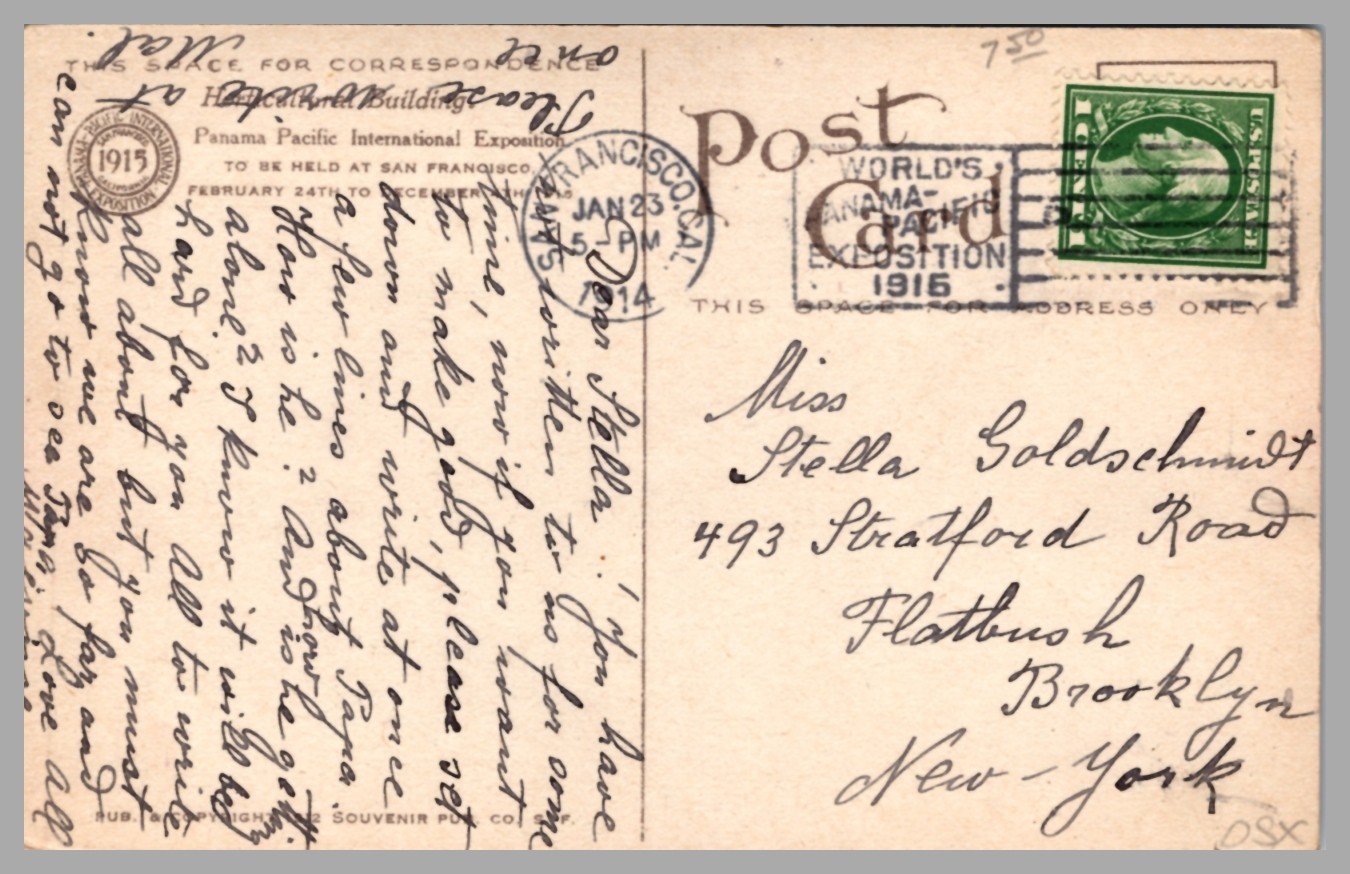 THIS SPACE FOR CORRESPONDENCE
Horticultural Building
Panama Pacific International Exposition
TO BE HELD AT SAN FRANCISCO,
FEBRUARY 24TH TO DECEMBER 4TH
PANAMA-PACIFIC INTERNATIONAL EXPOSITION
SAN FRANCISCO
1915
CALIFORNIA
Dear Stella. You have
not written to us for some
time, now if you want
to make good, please set
down and write at once
a few lines about Papa.
How is he? And how is he getting
along? I know it will be
hard for you all to write
all about but you must
know we are so far and
can not go to see Papa. Love All
Please write at
once
Mal.
PUB. & COPYRIGHT 1912 SOUVENIR PUB. CO. S.F.
Post
Card
THIS SPACE FOR ADDRESS ONLY
SAN FRANCISCO, CAL.
JAN 23
5-PM
1914
WORLD'S
PANAMA-
PACIFIC
EXPOSITION
1915
U.S. POSTAGE
1 CENT 1
7 50
Miss
Stella Goldschmidt
493 Stratford Road
Flatbush
Brooklyn
New-York
OSX